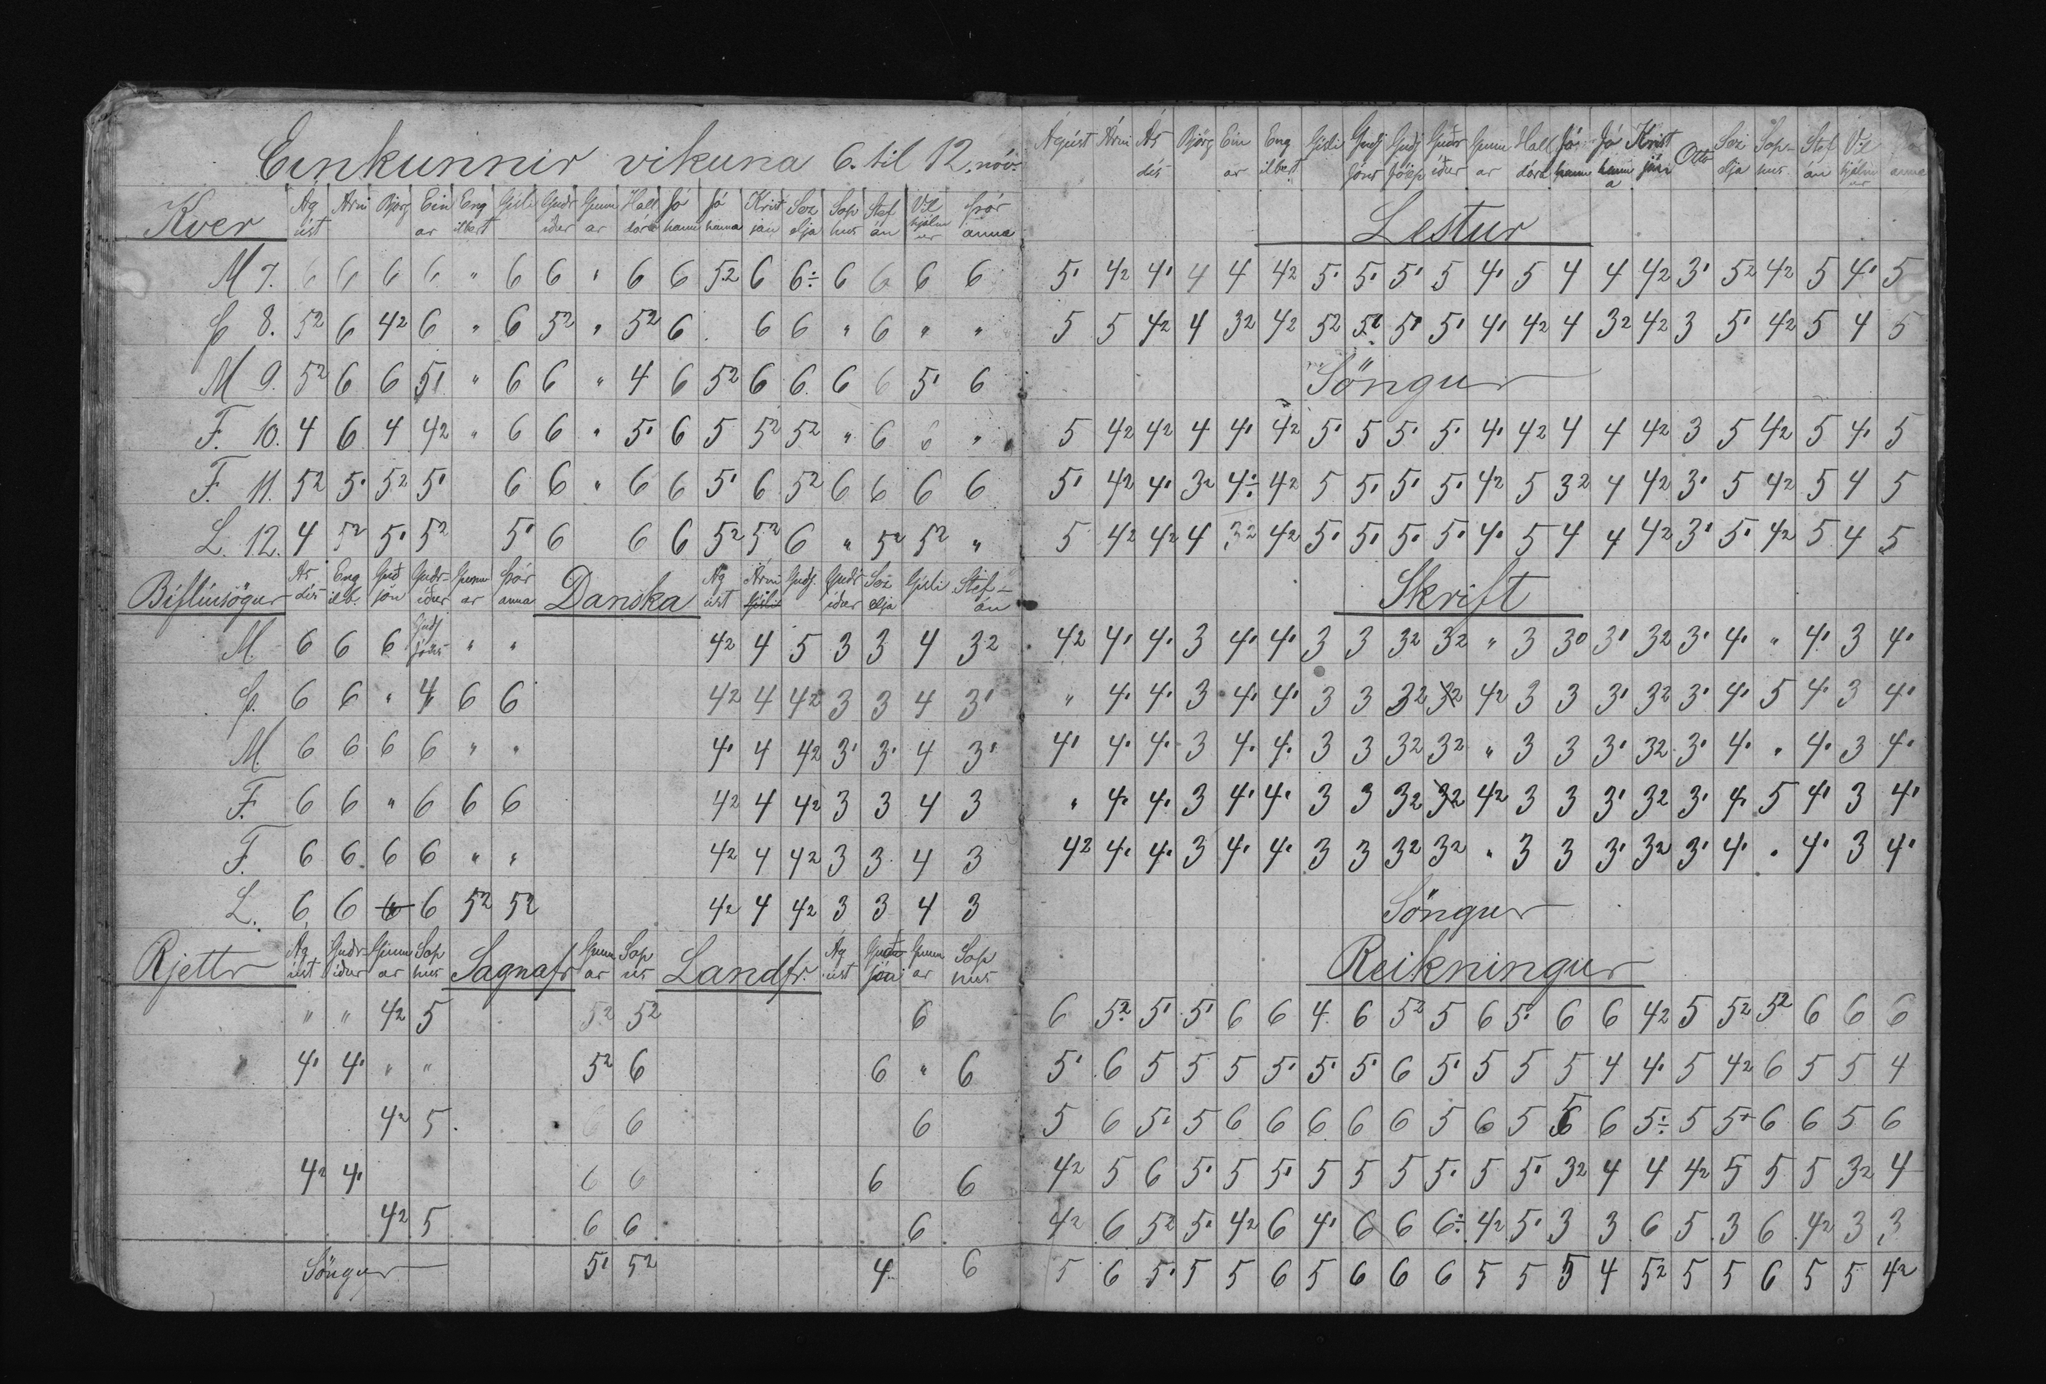 Einkunnir vikuna 6. til 12. nóv.
Kver Ágúst Árni Björg Einar Engilbert Gísli Guðríður Gunnar Halldóra Jóhann Jóhanna Kristján Sezelja Sophus Stefán Vilhjálmur Þóranna
M 7. 6 6 6 6 " 6 6 " 6 6 52 6 6÷ 6 6 6 6
Þ 8. 52 6 42 6 " 6 52 " 52 6 6 6 " 6 " "
M 9. 52 6 6 51 " 6 6 " 4 6 52 6 6 6 6 51 6
F. 10. 4 6 4 42 " 6 6 " 51 6 5 52 52 " 6 6 "
F. 11. 52 51 52 51 6 6 " 6 6 51 6 52 6 6 6 6
L. 12. 4 52 51 52 51 6 6 6 52 52 6 " 52 52 "
Biflíusögur Ásdís Engilb. Guðjón Guðríður Gunnar Þóranna Danska Ágúst Árni Gísli Guðj. Guðríður Sezelja Gísli Stefán
M. 6 6 6 Guðj Jóns " " 42 4 5 3 3 4 32
Þ. 6 6 " 4 6 6 42 4 42 3 3 4 31
M 6 6 6 6 " " 41 4 42 31 31 4 31
F. 6 6 " 6 6 6 42 4 42 3 3 4 3
F. 6 6 6 6 " " 42 4 42 3 3 4 3
L. 6 6 6 6 52 52 42 4 42 3 3 4 3
Rjettr Ágúst Guðríður Gunnar Sophus Sagnafr Gunnar Sophus Landfr. Ágúst Guðjón Gunnar Sophus
" " 42 5 52 52 6
41 41 " " 52 6 6 " 6
42 5 6 6 6
42 41 6 6 6 6
42 5 6 6 6
Söngur 51 52 4 6
Ágúst Árni Ásdís Björg Einar Engilbert Gísli Guðj Jóns Guðj Jósep Guðríður Gunnar Halldóra Jóhann Jóhanna Kristján Otto Sezelja Sophus Stefán Vilhjálmur Þóranna
Lestur
51 42 41 4 4 42 51 51 51 5 41 5 4 4 42 31 52 42 5 41 5
5 5 42 4 32 42 52 51 51 51 41 42 4 32 42 3 51 42 5 4 5
Söngur
5 42 42 4 41 42 51 5 51 51 41 42 4 4 42 3 5 42 5 41 5
51 42 41 32 4÷ 42 5 51 51 51 42 5 32 4 42 31 5 42 5 4 5
5 42 42 4 32 42 51 51 51 51 41 5 4 4 42 31 51 42 5 4 5
Skrift
42 41 41 3 41 41 3 3 32 32 " 3 30 31 32 31 41 " 41 3 41
" 41 41 3 41 41 3 3 32 32 42 3 3 31 32 31 41 5 41 3 41
41 41 41 3 41 41 3 3 32 32 " 3 3 31 32 31 41 " 41 3 41
" 41 41 3 41 41 3 3 32 32 42 3 3 31 32 31 41 5 41 3 41
42 41 41 3 41 41 3 3 32 32 " 3 3 31 32 31 41 " 41 3 41
Söngur
Reikningur
6 52 51 51 6 6 4 6 52 5 6 51 6 6 42 5 52 52 6 6 6
51 6 5 5 5 51 51 51 6 51 5 5 5 4 41 5 42 6 5 5 4
5 6 51 5 6 6 6 6 6 5 6 5 5 6 5÷ 5 5+ 6 6 5 6
42 5 6 51 5 51 5 5 5 51 5 51 32 4 4 42 5 5 5 32 4
42 6 52 51 42 6 41 6 6 6÷ 42 51 3 3 6 5 3 6 42 3 3
5 6 51 5 5 6 5 6 6 6 5 5 5 4 52 5 5 6 5 5 42